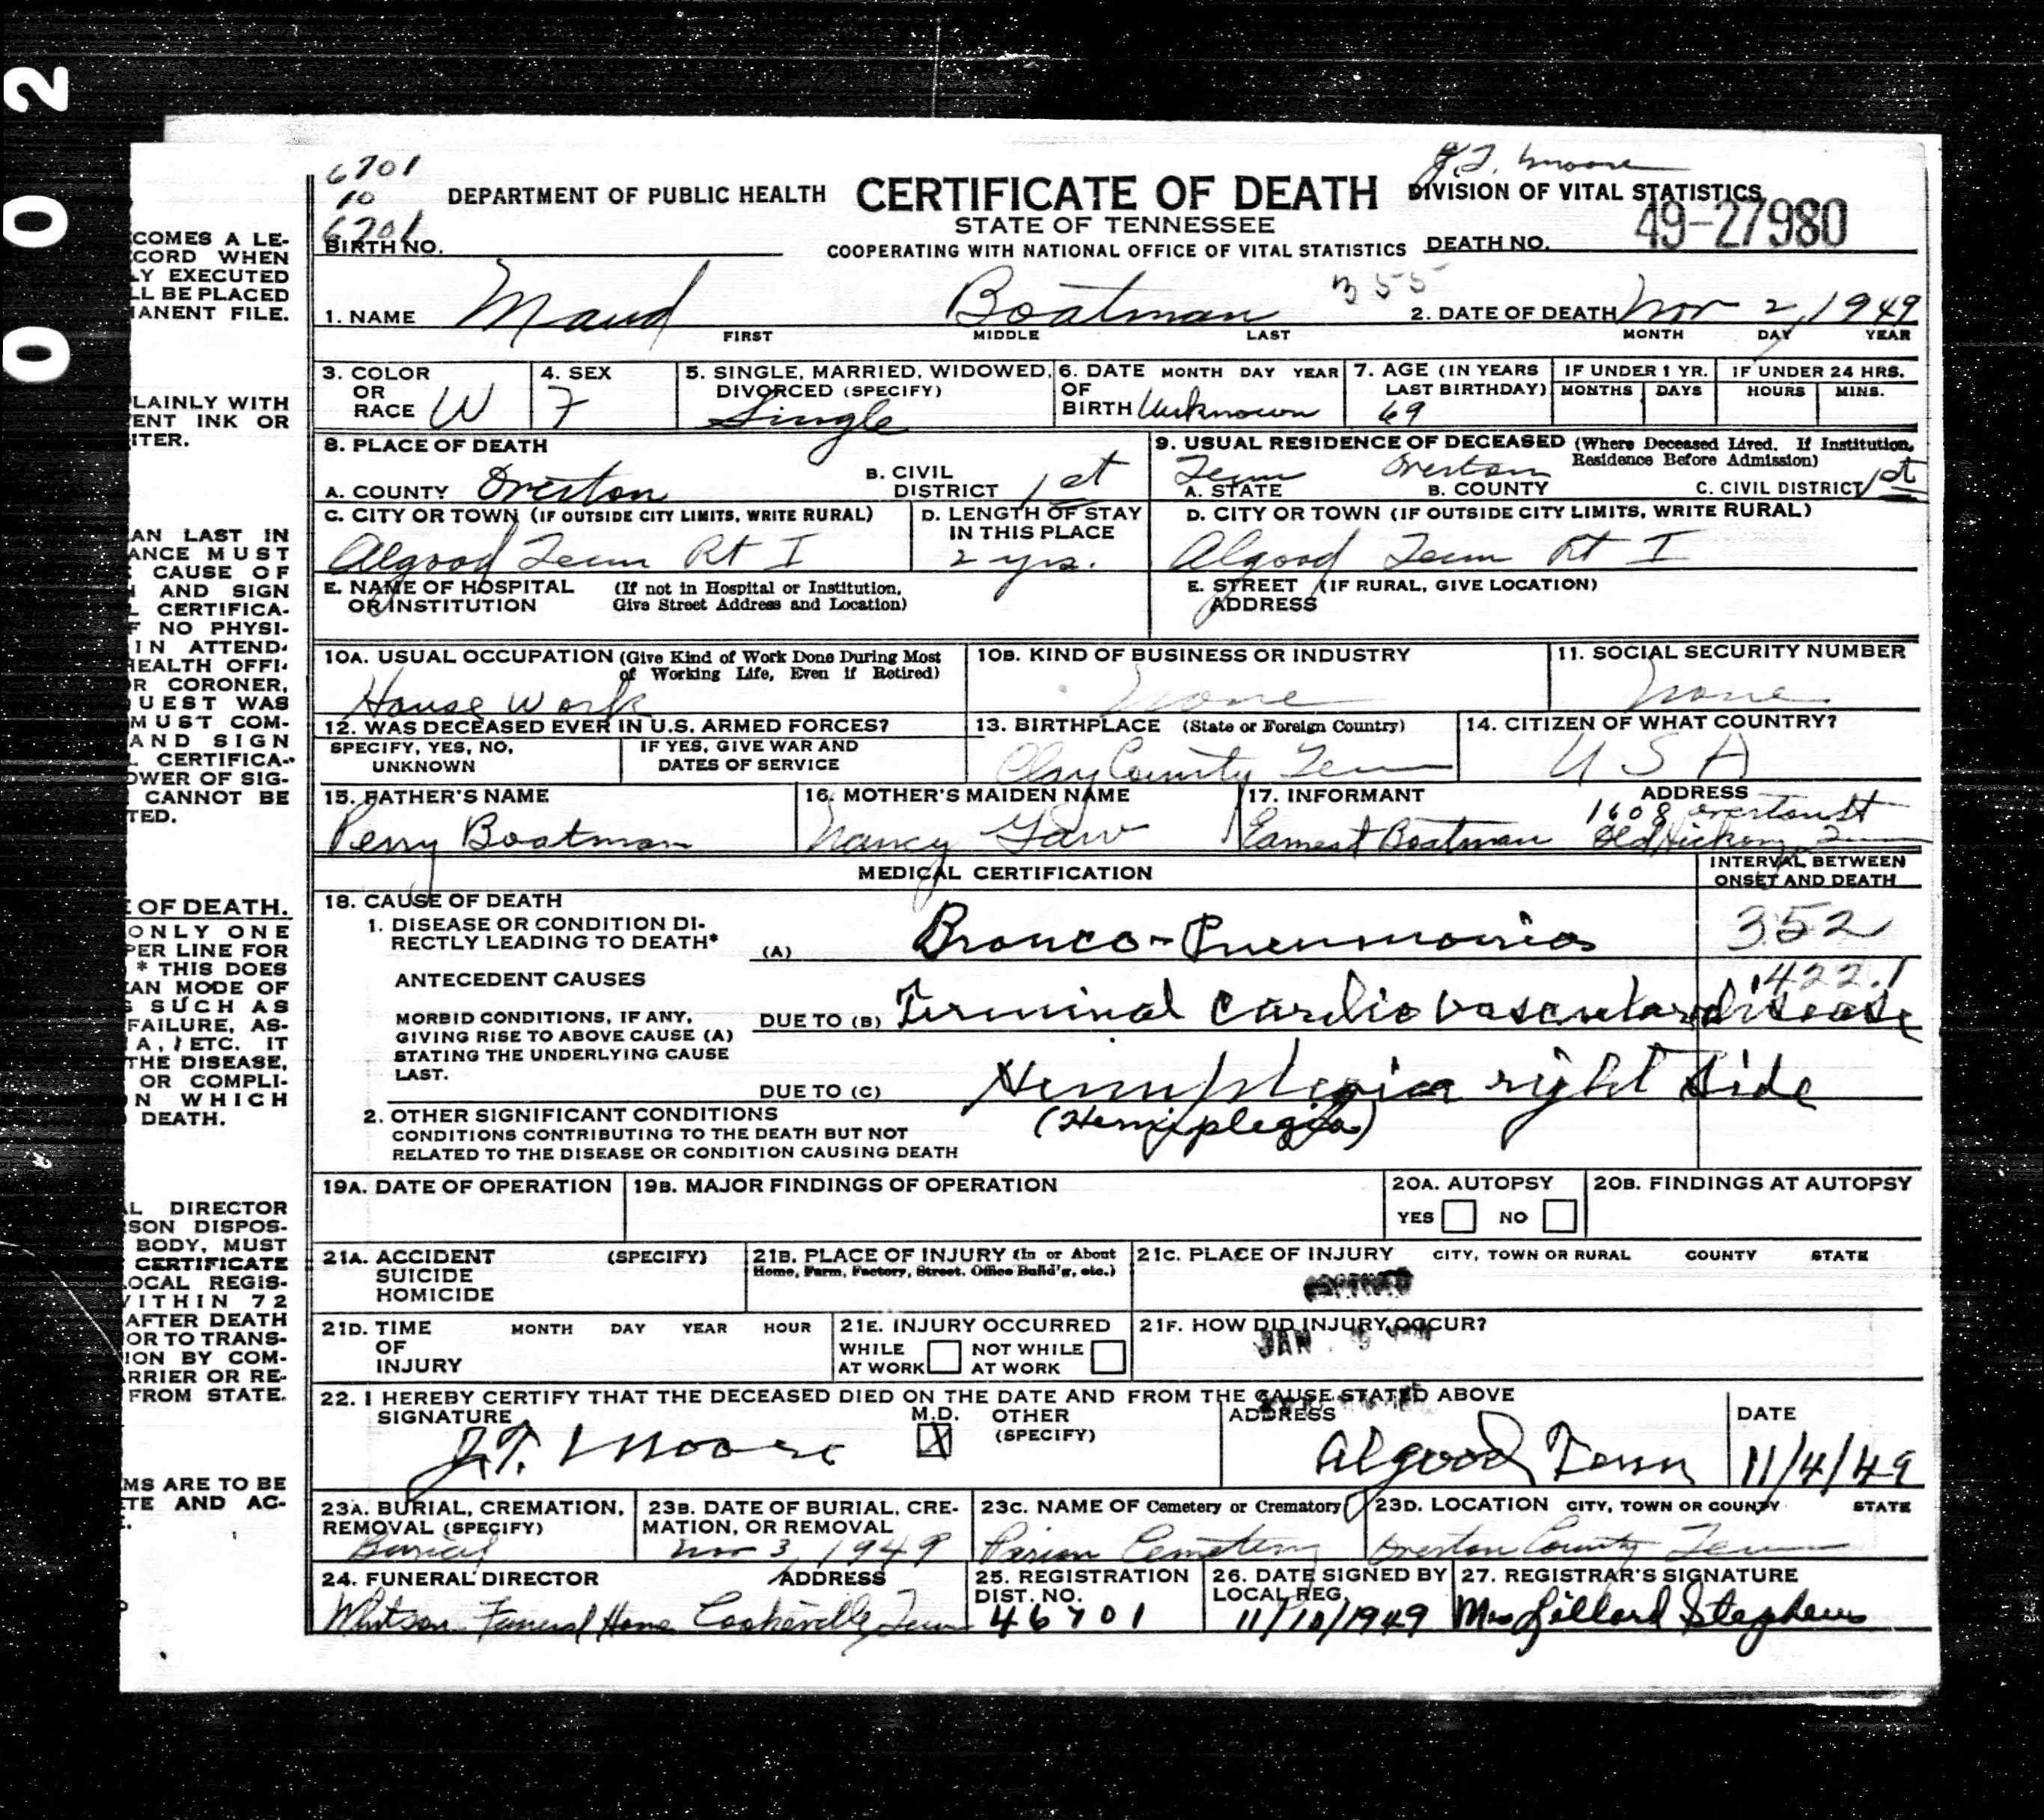 0 0 0 2
6701
10
6701
J.T. Moore
DEPARTMENT OF PUBLIC HEALTH
CERTIFICATE OF DEATH
DIVISION OF VITAL STATISTICS
STATE OF TENNESSEE
49-27980
BIRTH NO.
COOPERATING WITH NATIONAL OFFICE OF VITAL STATISTICS
DEATH NO.
355
1. NAME Maud Boatman
FIRST MIDDLE LAST
2. DATE OF DEATH Nov 2, 1949
MONTH DAY YEAR
3. COLOR OR RACE W
4. SEX F
5. SINGLE, MARRIED, WIDOWED, DIVORCED (SPECIFY) Single
6. DATE OF BIRTH MONTH DAY YEAR Unknown
7. AGE (IN YEARS LAST BIRTHDAY) 69
IF UNDER 1 YR. MONTHS DAYS
IF UNDER 24 HRS. HOURS MINS.
8. PLACE OF DEATH
A. COUNTY Overton
B. CIVIL DISTRICT 1st
9. USUAL RESIDENCE OF DECEASED (Where Deceased Lived. If Institution, Residence Before Admission)
A. STATE Tenn
B. COUNTY Overton
C. CIVIL DISTRICT 1st
C. CITY OR TOWN (IF OUTSIDE CITY LIMITS, WRITE RURAL)
Algood Tenn Rt I
D. LENGTH OF STAY IN THIS PLACE
2 yrs.
D. CITY OR TOWN (IF OUTSIDE CITY LIMITS, WRITE RURAL)
Algood Tenn Rt I
E. NAME OF HOSPITAL OR INSTITUTION (If not in Hospital or Institution, Give Street Address and Location)
E. STREET ADDRESS (IF RURAL, GIVE LOCATION)
10A. USUAL OCCUPATION (Give Kind of Work Done During Most of Working Life, Even if Retired)
House Work
10B. KIND OF BUSINESS OR INDUSTRY
None
11. SOCIAL SECURITY NUMBER
None
12. WAS DECEASED EVER IN U.S. ARMED FORCES?
SPECIFY, YES, NO, UNKNOWN
IF YES, GIVE WAR AND DATES OF SERVICE
13. BIRTHPLACE (State or Foreign Country)
Clay County Tenn
14. CITIZEN OF WHAT COUNTRY?
USA
15. FATHER'S NAME
Perry Boatman
16. MOTHER'S MAIDEN NAME
Nancy Gaw
17. INFORMANT ADDRESS
Earnest Boatman 1608 Overton St Old Hickory, Tenn
MEDICAL CERTIFICATION
INTERVAL BETWEEN ONSET AND DEATH
18. CAUSE OF DEATH
1. DISEASE OR CONDITION DIRECTLY LEADING TO DEATH*
(A) Bronco-Pneumonia
352
ANTECEDENT CAUSES
422.1
MORBID CONDITIONS, IF ANY, GIVING RISE TO ABOVE CAUSE (A) STATING THE UNDERLYING CAUSE LAST.
DUE TO (B) Terminal Cardio vascular disease
DUE TO (C) Hemiplegia right side
(Hemiplegia)
2. OTHER SIGNIFICANT CONDITIONS
CONDITIONS CONTRIBUTING TO THE DEATH BUT NOT
RELATED TO THE DISEASE OR CONDITION CAUSING DEATH
19A. DATE OF OPERATION
19B. MAJOR FINDINGS OF OPERATION
20A. AUTOPSY
YES NO
20B. FINDINGS AT AUTOPSY
21A. ACCIDENT SUICIDE HOMICIDE (SPECIFY)
21B. PLACE OF INJURY (In or About Home, Farm, Factory, Street, Office Build'g, etc.)
21C. PLACE OF INJURY CITY, TOWN OR RURAL COUNTY STATE
21D. TIME OF INJURY MONTH DAY YEAR HOUR
21E. INJURY OCCURRED
WHILE AT WORK NOT WHILE AT WORK
21F. HOW DID INJURY OCCUR?
JAN
22. I HEREBY CERTIFY THAT THE DECEASED DIED ON THE DATE AND FROM THE CAUSE STATED ABOVE
SIGNATURE J.T. Moore
M.D. X OTHER (SPECIFY)
ADDRESS Algood Tenn
DATE 11/4/49
23A. BURIAL, CREMATION, REMOVAL (SPECIFY)
Burial
23B. DATE OF BURIAL, CREMATION, OR REMOVAL
Nov 3, 1949
23C. NAME OF Cemetery or Crematory
Cemetery
23D. LOCATION CITY, TOWN OR COUNTY STATE
Overton County Tenn
24. FUNERAL DIRECTOR ADDRESS
Whitson Funeral Home Cookeville, Tenn
25. REGISTRATION DIST. NO.
46701
26. DATE SIGNED BY LOCAL REG.
11/10/1949
27. REGISTRAR'S SIGNATURE
Mrs Lillard Stephens
COMES A LE-
CORD WHEN
LY EXECUTED
LL BE PLACED
ANENT FILE.
LAINLY WITH
ENT INK OR
ITER.
AN LAST IN
ANCE MUST
CAUSE OF
AND SIGN
CERTIFICA-
F NO PHYSI-
IN ATTEND-
HEALTH OFFI-
R CORONER,
UEST WAS
MUST COM-
AND SIGN
CERTIFICA-
OWER OF SIG-
CANNOT BE
TED.
OF DEATH.
ONLY ONE
PER LINE FOR
* THIS DOES
AN MODE OF
SUCH AS
FAILURE, AS-
A, ETC. IT
THE DISEASE,
OR COMPLI-
N WHICH
DEATH.
L DIRECTOR
SON DISPOS-
BODY, MUST
CERTIFICATE
OCAL REGIS-
ITHIN 72
AFTER DEATH
OR TO TRANS-
ION BY COM-
RRIER OR RE-
FROM STATE.
MS ARE TO BE
TE AND AC-